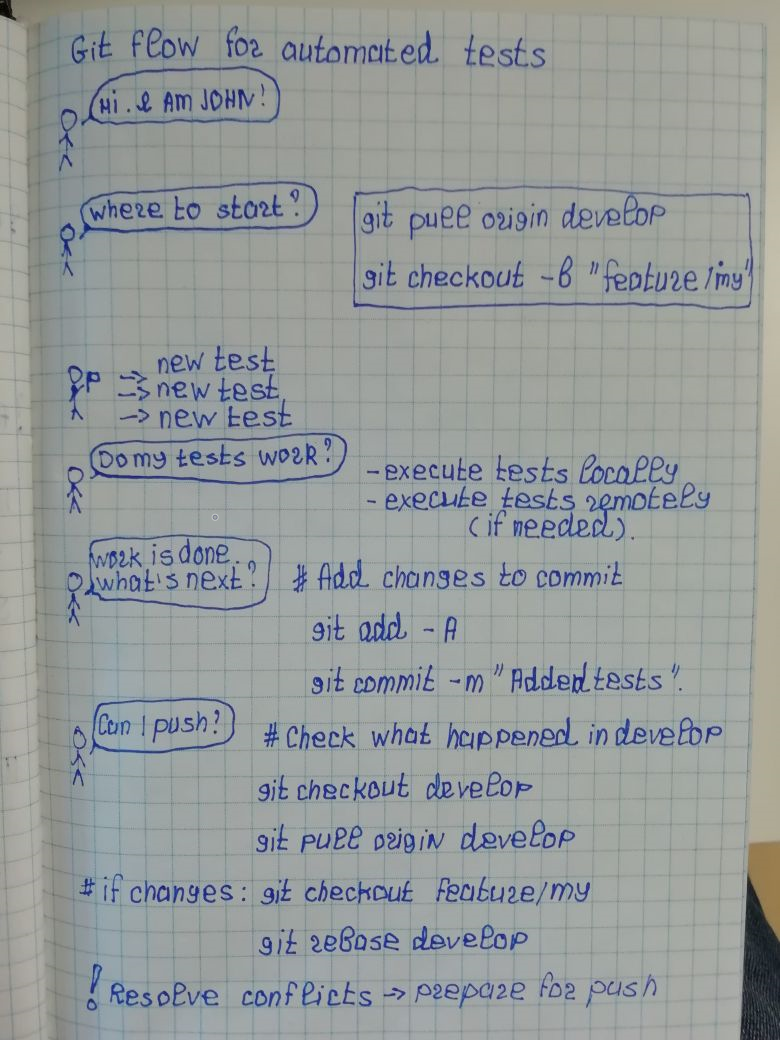 Git flow for automated tests
Hi. I AM JOHN!
where to start?
git pull origin develop
git checkout -b "feature/my"
-> new test
-> new test
-> new test
Do my tests work?
- execute tests locally
- execute tests remotely
(if needed).
work is done.
what's next?
# Add changes to commit
git add - A
git commit -m "Added tests".
Can I push?
# Check what happened in develop
git checkout develop
git pull origin develop
# if changes: git checkout feature/my
git rebase develop
! Resolve conflicts -> prepare for push